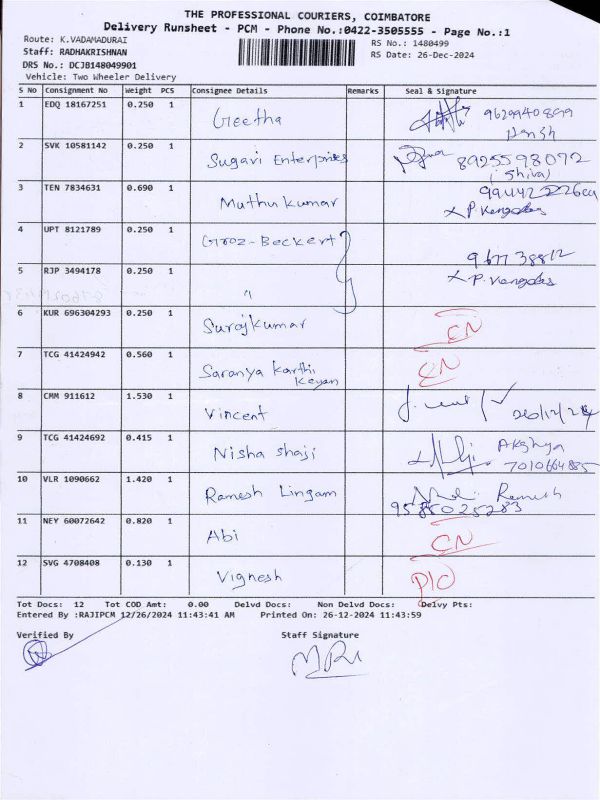 THE PROFESSIONAL COURIERS, COIMBATORE
Delivery Runsheet - PCM - Phone No.:0422-3505555 - Page No.:1
Route: K.VADAMADURAI
RS No.: 1480499
Staff: RADHAKRISHNAN
RS Date: 26-Dec-2024
DRS No.: DCJB148049901
Vehicle: Two Wheeler Delivery
S No Consignment No Weight PCS Consignee Details Remarks Seal & Signature
1 EDQ 18167251 0.250 1 Geetha
2 SVK 10581142 0.250 1 Sugavi Enterprises 8925598072
(Shiva)
3 TEN 7834631 0.690 1 Muthukumar
4 UPT 8121789 0.250 1 Groz-Beckert
5 RJP 3494178 0.250 1 "
6 KUR 696304293 0.250 1 Surajkumar CN
7 TCG 41424942 0.560 1 Saranya Karthi CN
Keyan
8 CMM 911612 1.530 1 Vincent 26/12/24
9 TCG 41424692 0.415 1 Nisha shaji Akshya
7010664885
10 VLR 1090662 1.420 1 Ramesh Lingam Ramesh
9585025283
11 NEY 60072642 0.820 1 Abi CN
12 SVG 4708408 0.130 1 Vignesh P/C
Tot Docs: 12 Tot COD Amt: 0.00 Delvd Docs: Non Delvd Docs: Delvy Pts:
Entered By :RAJIPCM 12/26/2024 11:43:41 AM Printed On: 26-12-2024 11:43:59
Verified By Staff Signature